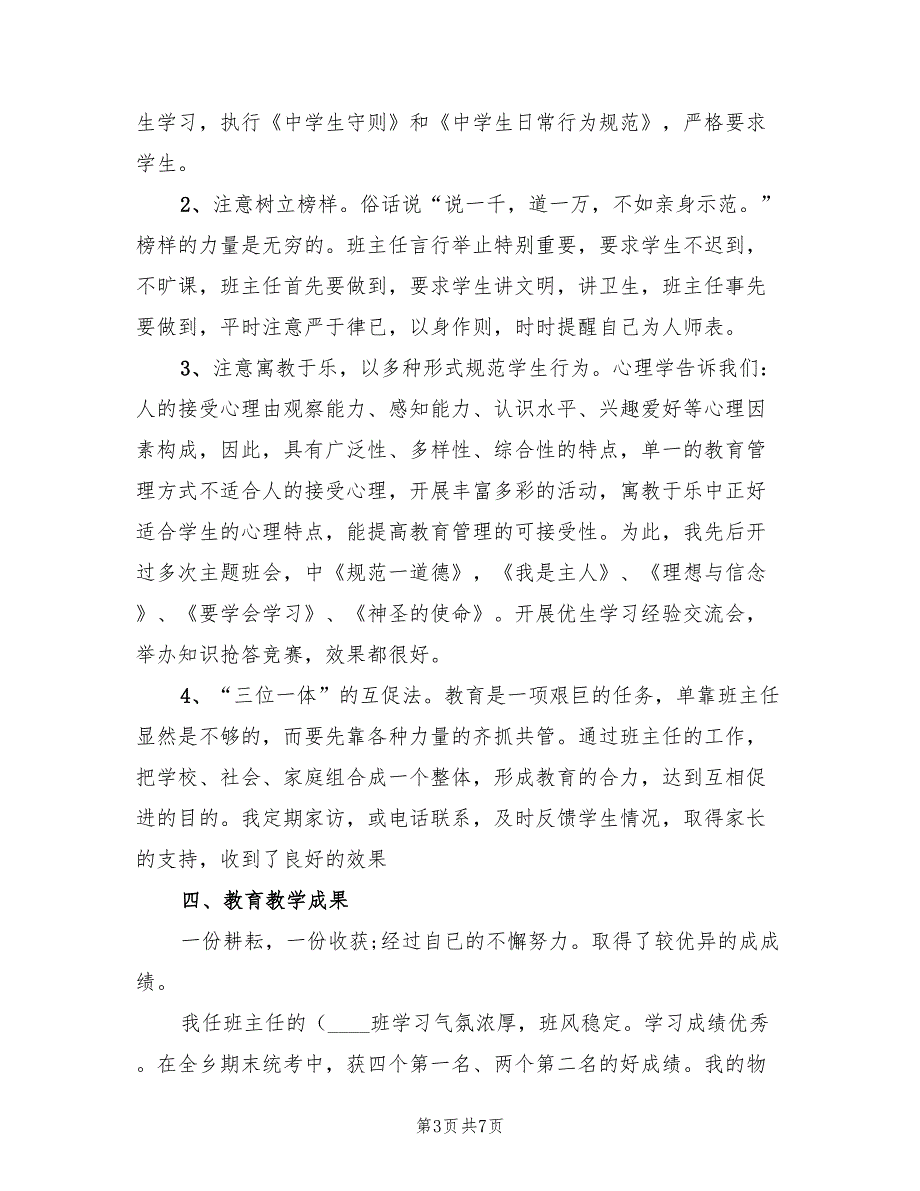 生学习，执行《中学生守则》和《中学生日常行为规范》，严格要求
学生。
2、注意树立榜样。俗话说“说一千，道一万，不如亲身示范。”
榜样的力量是无穷的。班主任言行举止特别重要，要求学生不迟到，
不旷课，班主任首先要做到，要求学生讲文明，讲卫生，班主任事先
要做到，平时注意严于律已，以身作则，时时提醒自己为人师表。
3、注意寓教于乐，以多种形式规范学生行为。心理学告诉我们：
人的接受心理由观察能力、感知能力、认识水平、兴趣爱好等心理因
素构成，因此，具有广泛性、多样性、综合性的特点，单一的教育管
理方式不适合人的接受心理，开展丰富多彩的活动，寓教于乐中正好
适合学生的心理特点，能提高教育管理的可接受性。为此，我先后开
过多次主题班会，中《规范一道德》，《我是主人》、《理想与信念
》、《要学会学习》、《神圣的使命》。开展优生学习经验交流会，
举办知识抢答竞赛，效果都很好。
4、“三位一体”的互促法。教育是一项艰巨的任务，单靠班主任
显然是不够的，而要先靠各种力量的齐抓共管。通过班主任的工作，
把学校、社会、家庭组合成一个整体，形成教育的合力，达到互相促
进的目的。我定期家访，或电话联系，及时反馈学生情况，取得家长
的支持，收到了良好的效果
四、教育教学成果
一份耕耘，一份收获;经过自已的不懈努力。取得了较优异的成成
绩。
我任班主任的（____班学习气氛浓厚，班风稳定。学习成绩优秀
。在全乡期末统考中，获四个第一名、两个第二名的好成绩。我的物
第3页共7页